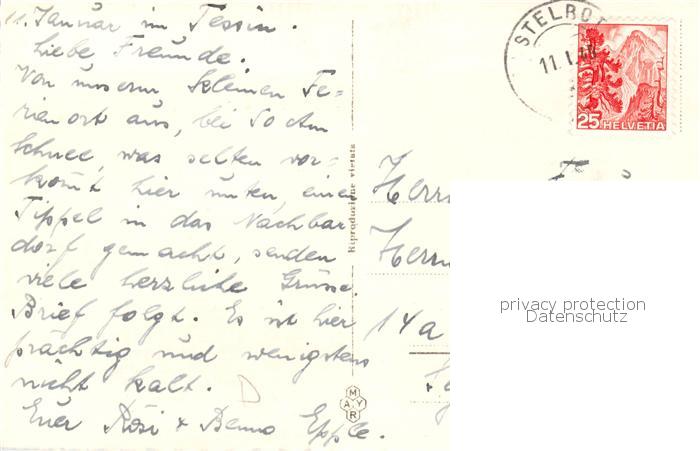 11. Januar im Tessin.
Liebe Freunde.
Von unserm kleinen Fe-
rienort aus, bei 50 cm
Schnee, was selten vor-
kommt hier unten, einen
Tippel in das Nachbar
dorf gemacht, senden
viele herzliche Grüsse.
Brief folgt. Es ist hier
prächtig und wenigstens
nicht kalt.
Euer Rösi + Benno Epple.
Riproduzione vietata
MAYR
STELROT
11.I.48
25 HELVETIA
Herrn
Herrn
14a
privacy protection
Datenschutz